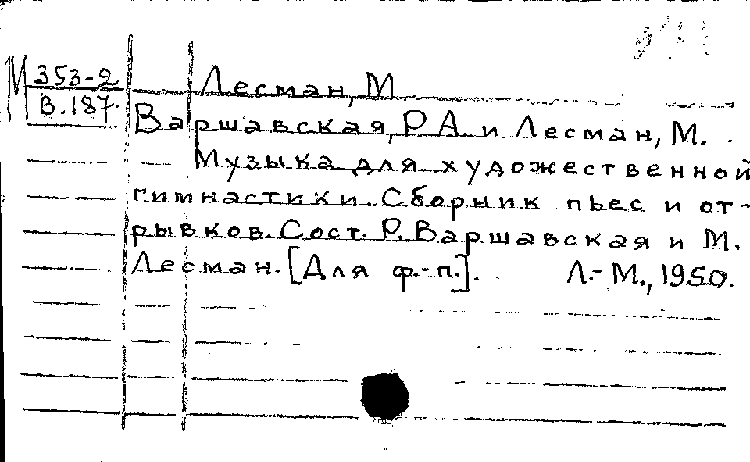 М 353-2 Лесман, М
В.187
Варшавская, Р.А. и Лесман, М.
Музыка для художественной
гимнастики. Сборник пьес и от-
рывков. Сост. Р. Варшавская и М.
Лесман. [Для ф.-п.]. Л.-М., 1950.